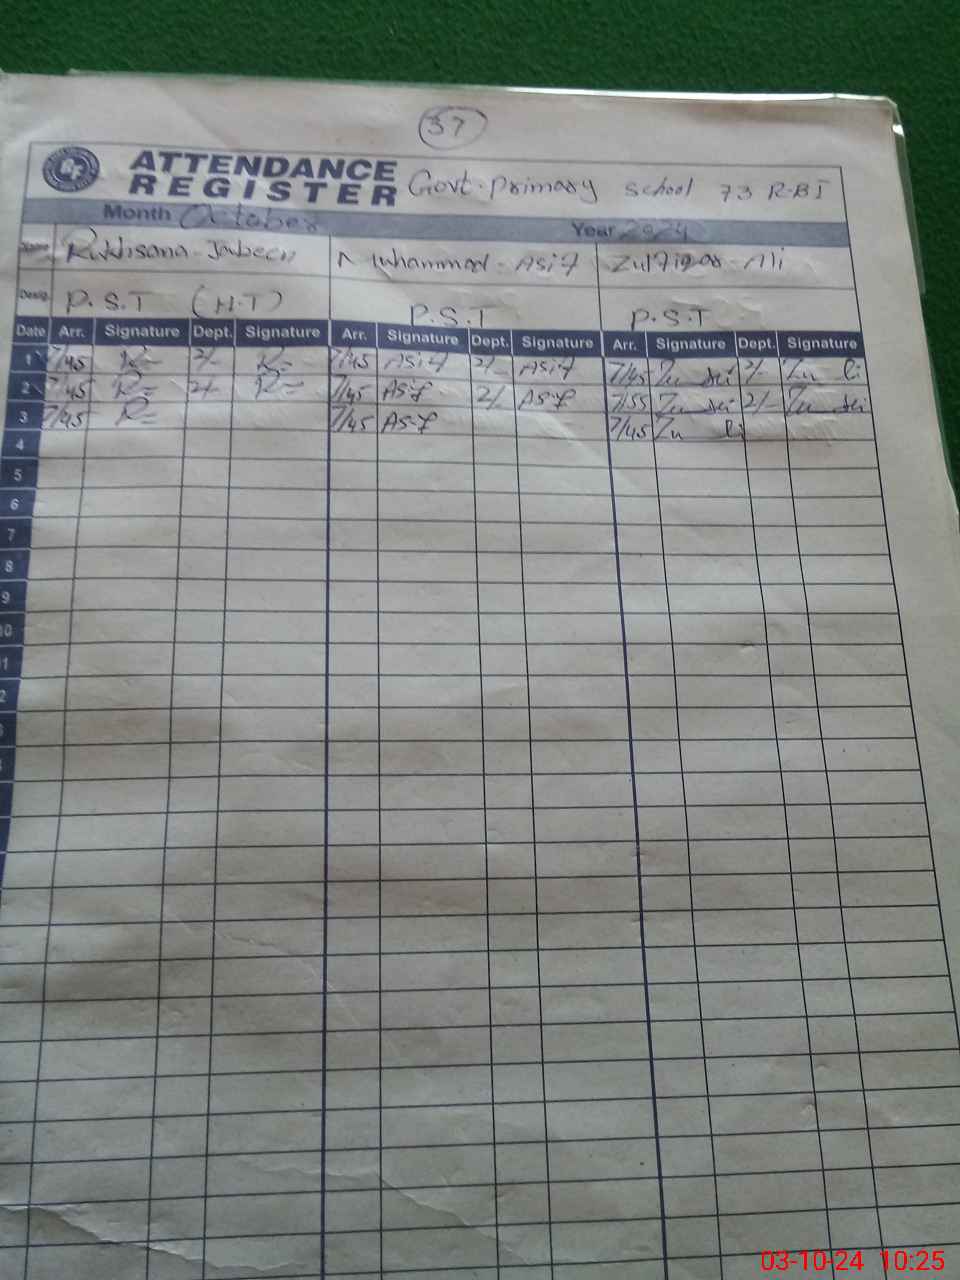 37
ATTENDANCE
REGISTER Govt. Primary School 73 R-B I
Month October Year 2024
Name Rukhsana-Jabeen Muhammad-Asif Zulfiqar-Ali
Desig. P.S.T (H.T) P.S.T P.S.T
Date Arr. Signature Dept. Signature Arr. Signature Dept. Signature Arr. Signature Dept. Signature
1 7/45 2/- 7/45 Asif 2/- Asif 7/45 2/-
2 7/45 2/- 7/45 Asif 2/- Asif 7/55 2/-
3 7/45 7/45 Asif 7/45
4
5
6
7
8
9
10
11
03-10-24 10:25